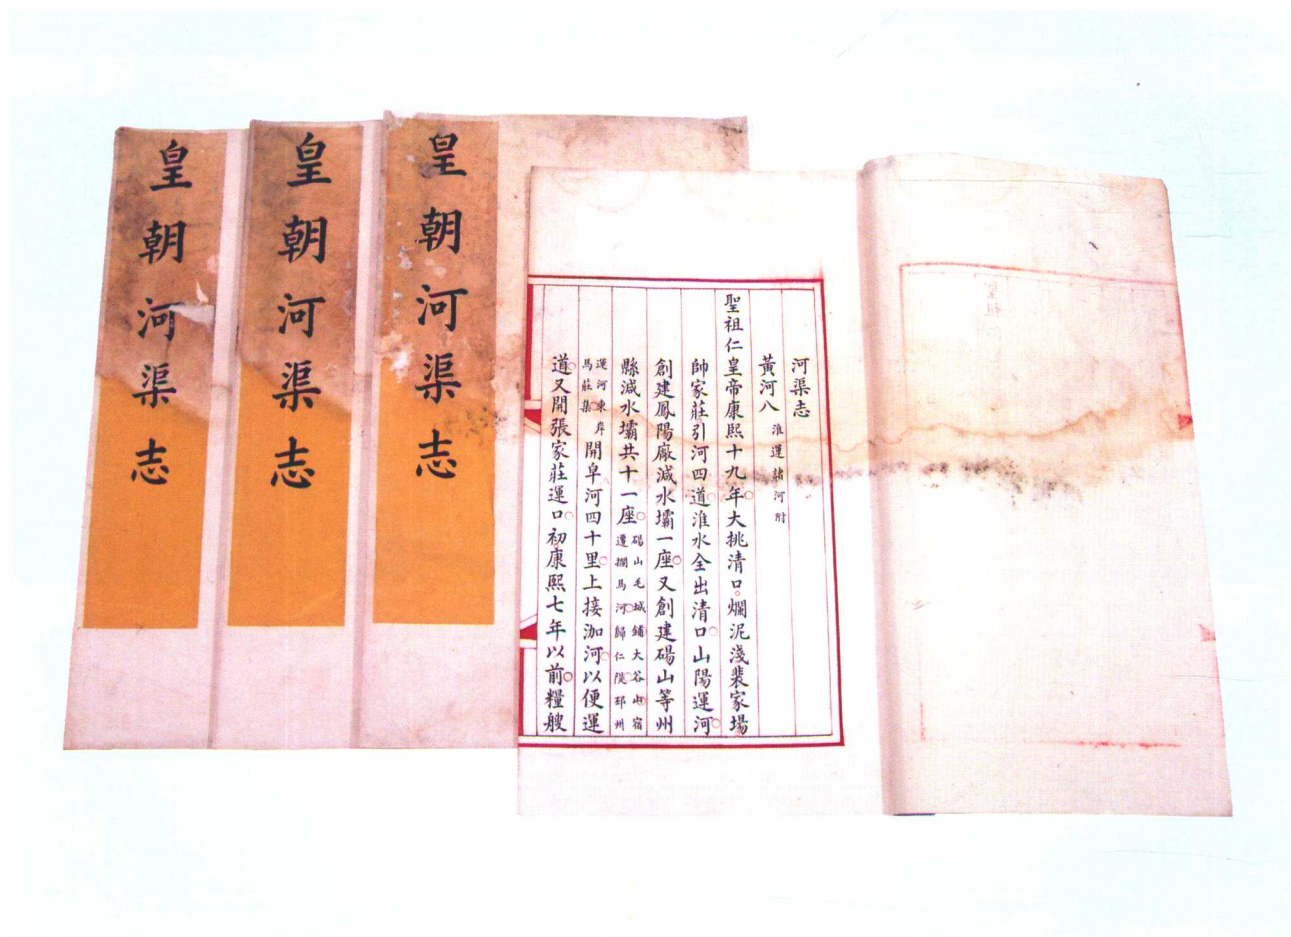 皇朝河渠志
皇朝河渠志
皇朝河渠志
河渠志
黃河八 淮運諸河附
聖祖仁皇帝康熙十九年大挑清口爛泥淺裴家場
帥家莊引河四道淮水全出清口山陽運河
創建鳳陽廠減水壩一座又創建碭山等州
縣減水壩共十一座碭山毛城鋪大谷山宿
遷攔馬河歸仁隄邳州
運河東岸
馬莊集開皁河四十里上接泇河以便運
道又開張家莊運口初康熙七年以前糧艘